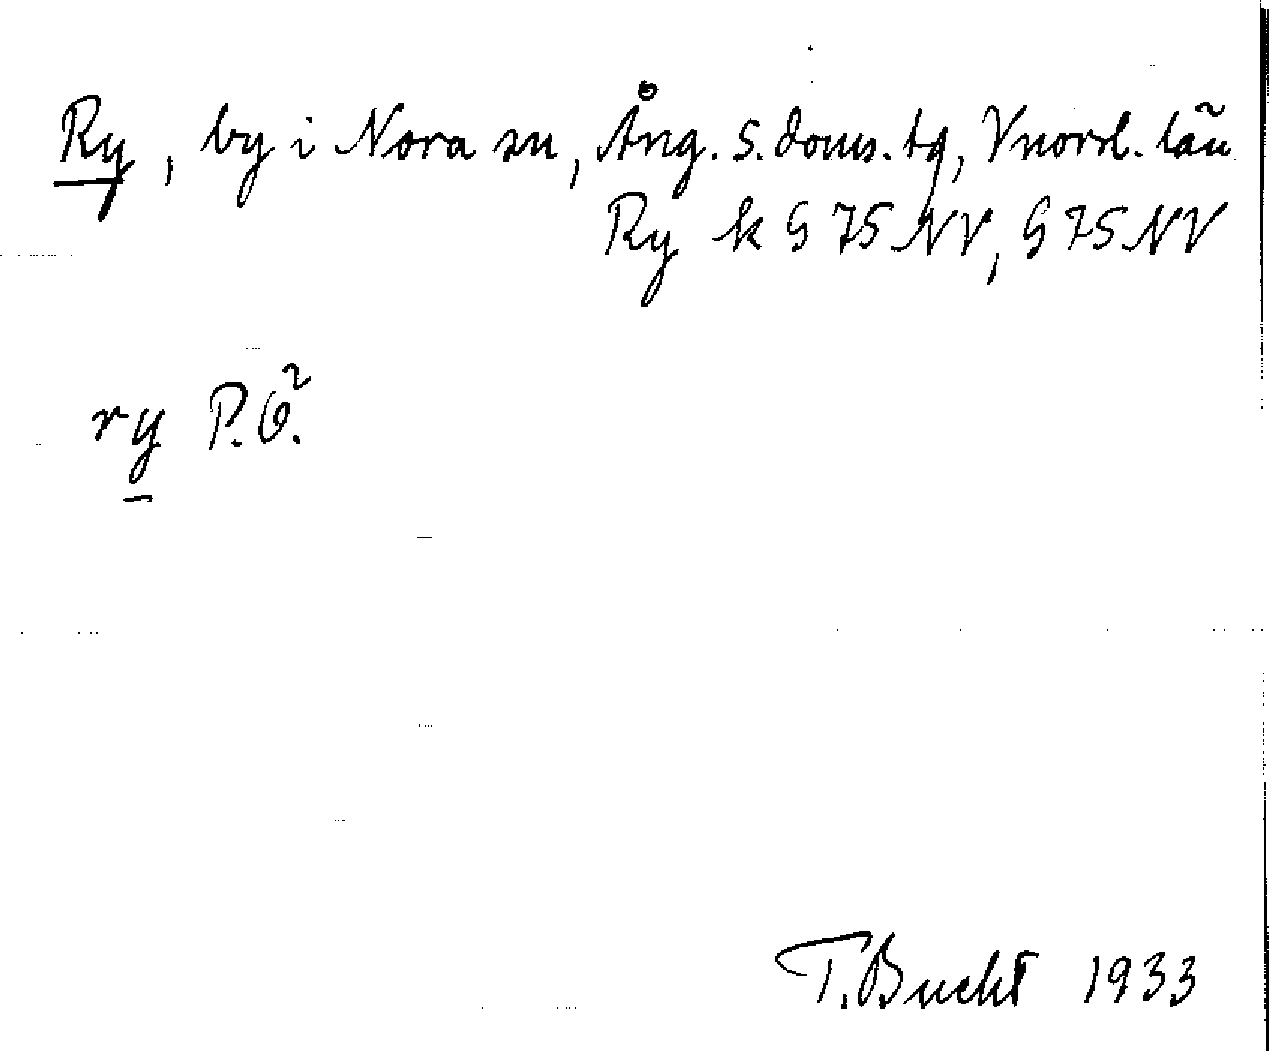 Ry, by i Nora sn, Ång. s. doms. tg, Vnorrl. län
Ry k G 75 NV, G 75 NV
ry P.Ö.
T. Bucht 1933